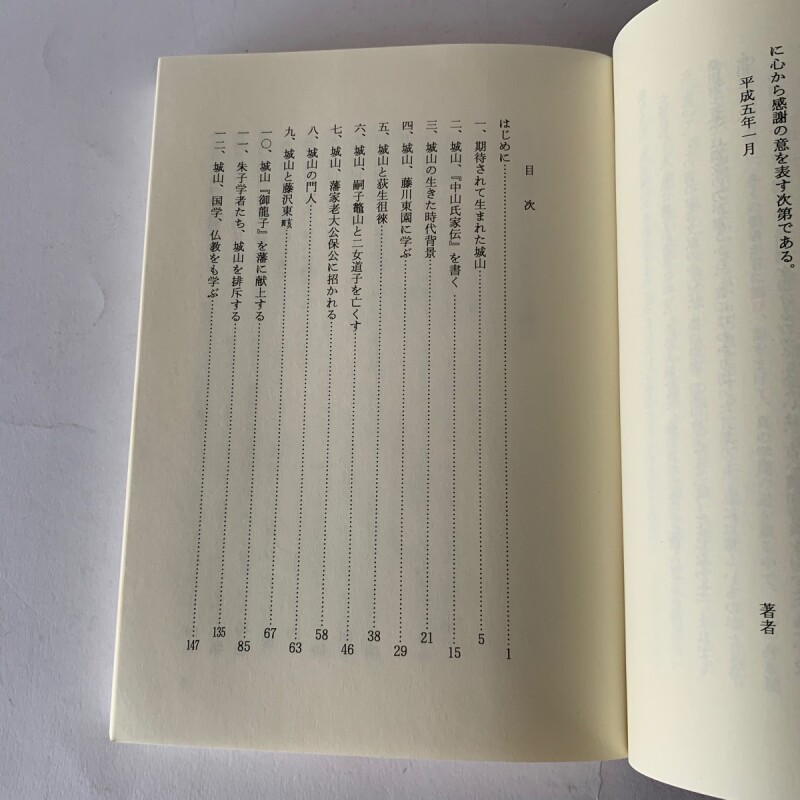 に心から感謝の意を表す次第である。
平成五年一月
著者
目次
はじめに……1
一、期待されて生まれた城山……5
二、城山、『中山氏家伝』を書く……15
三、城山の生きた時代背景……21
四、城山、藤川東園に学ぶ……29
五、城山と荻生徂徠……38
六、城山、嗣子鼇山と二女道子を亡くす……46
七、城山、藩家老大公保公に招かれる……58
八、城山の門人……63
九、城山と藤沢東畡……67
一〇、城山『御龍子』を藩に献上する……85
一一、朱子学者たち、城山を排斥する……135
一二、城山、国学、仏教をも学ぶ……147